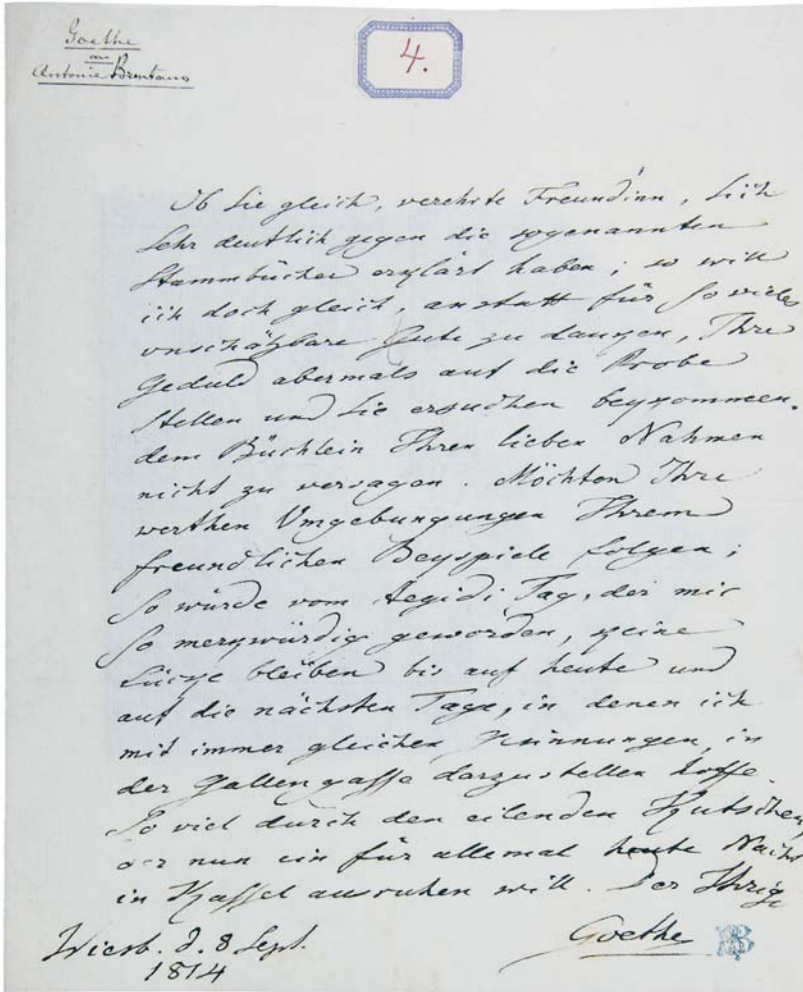 Goethe
an
Antonie Brentano
4.
Ob Sie gleich, verehrte Freundinn, Sich
sehr deutlich gegen die sogenannten
Stammbücher erklärt haben; so will
ich doch gleich, anstatt für so vieles
unschätzbare Gute zu dancken, Ihre
Geduld abermals auf die Probe
stellen und Sie ersuchen beykommen-
dem Büchlein Ihren lieben Nahmen
nicht zu versagen. Möchten Ihre
werthen Umgebungungen Ihrem
freundlichen Beyspiele folgen;
so würde vom Aegidi Tag, der mir
so merkwürdig geworden, keine
Lücke bleiben bis auf heute und
auf die nächsten Tage, in denen ich
mit immer gleichen in
der darzustellen hoffe.
So viel durch den eilenden Kutscher,
der nun ein für allemal heute Nacht
in Kassel ausruhen will. Der Ihrige
Wiesb. d. 8 Sept.
1814
Goethe